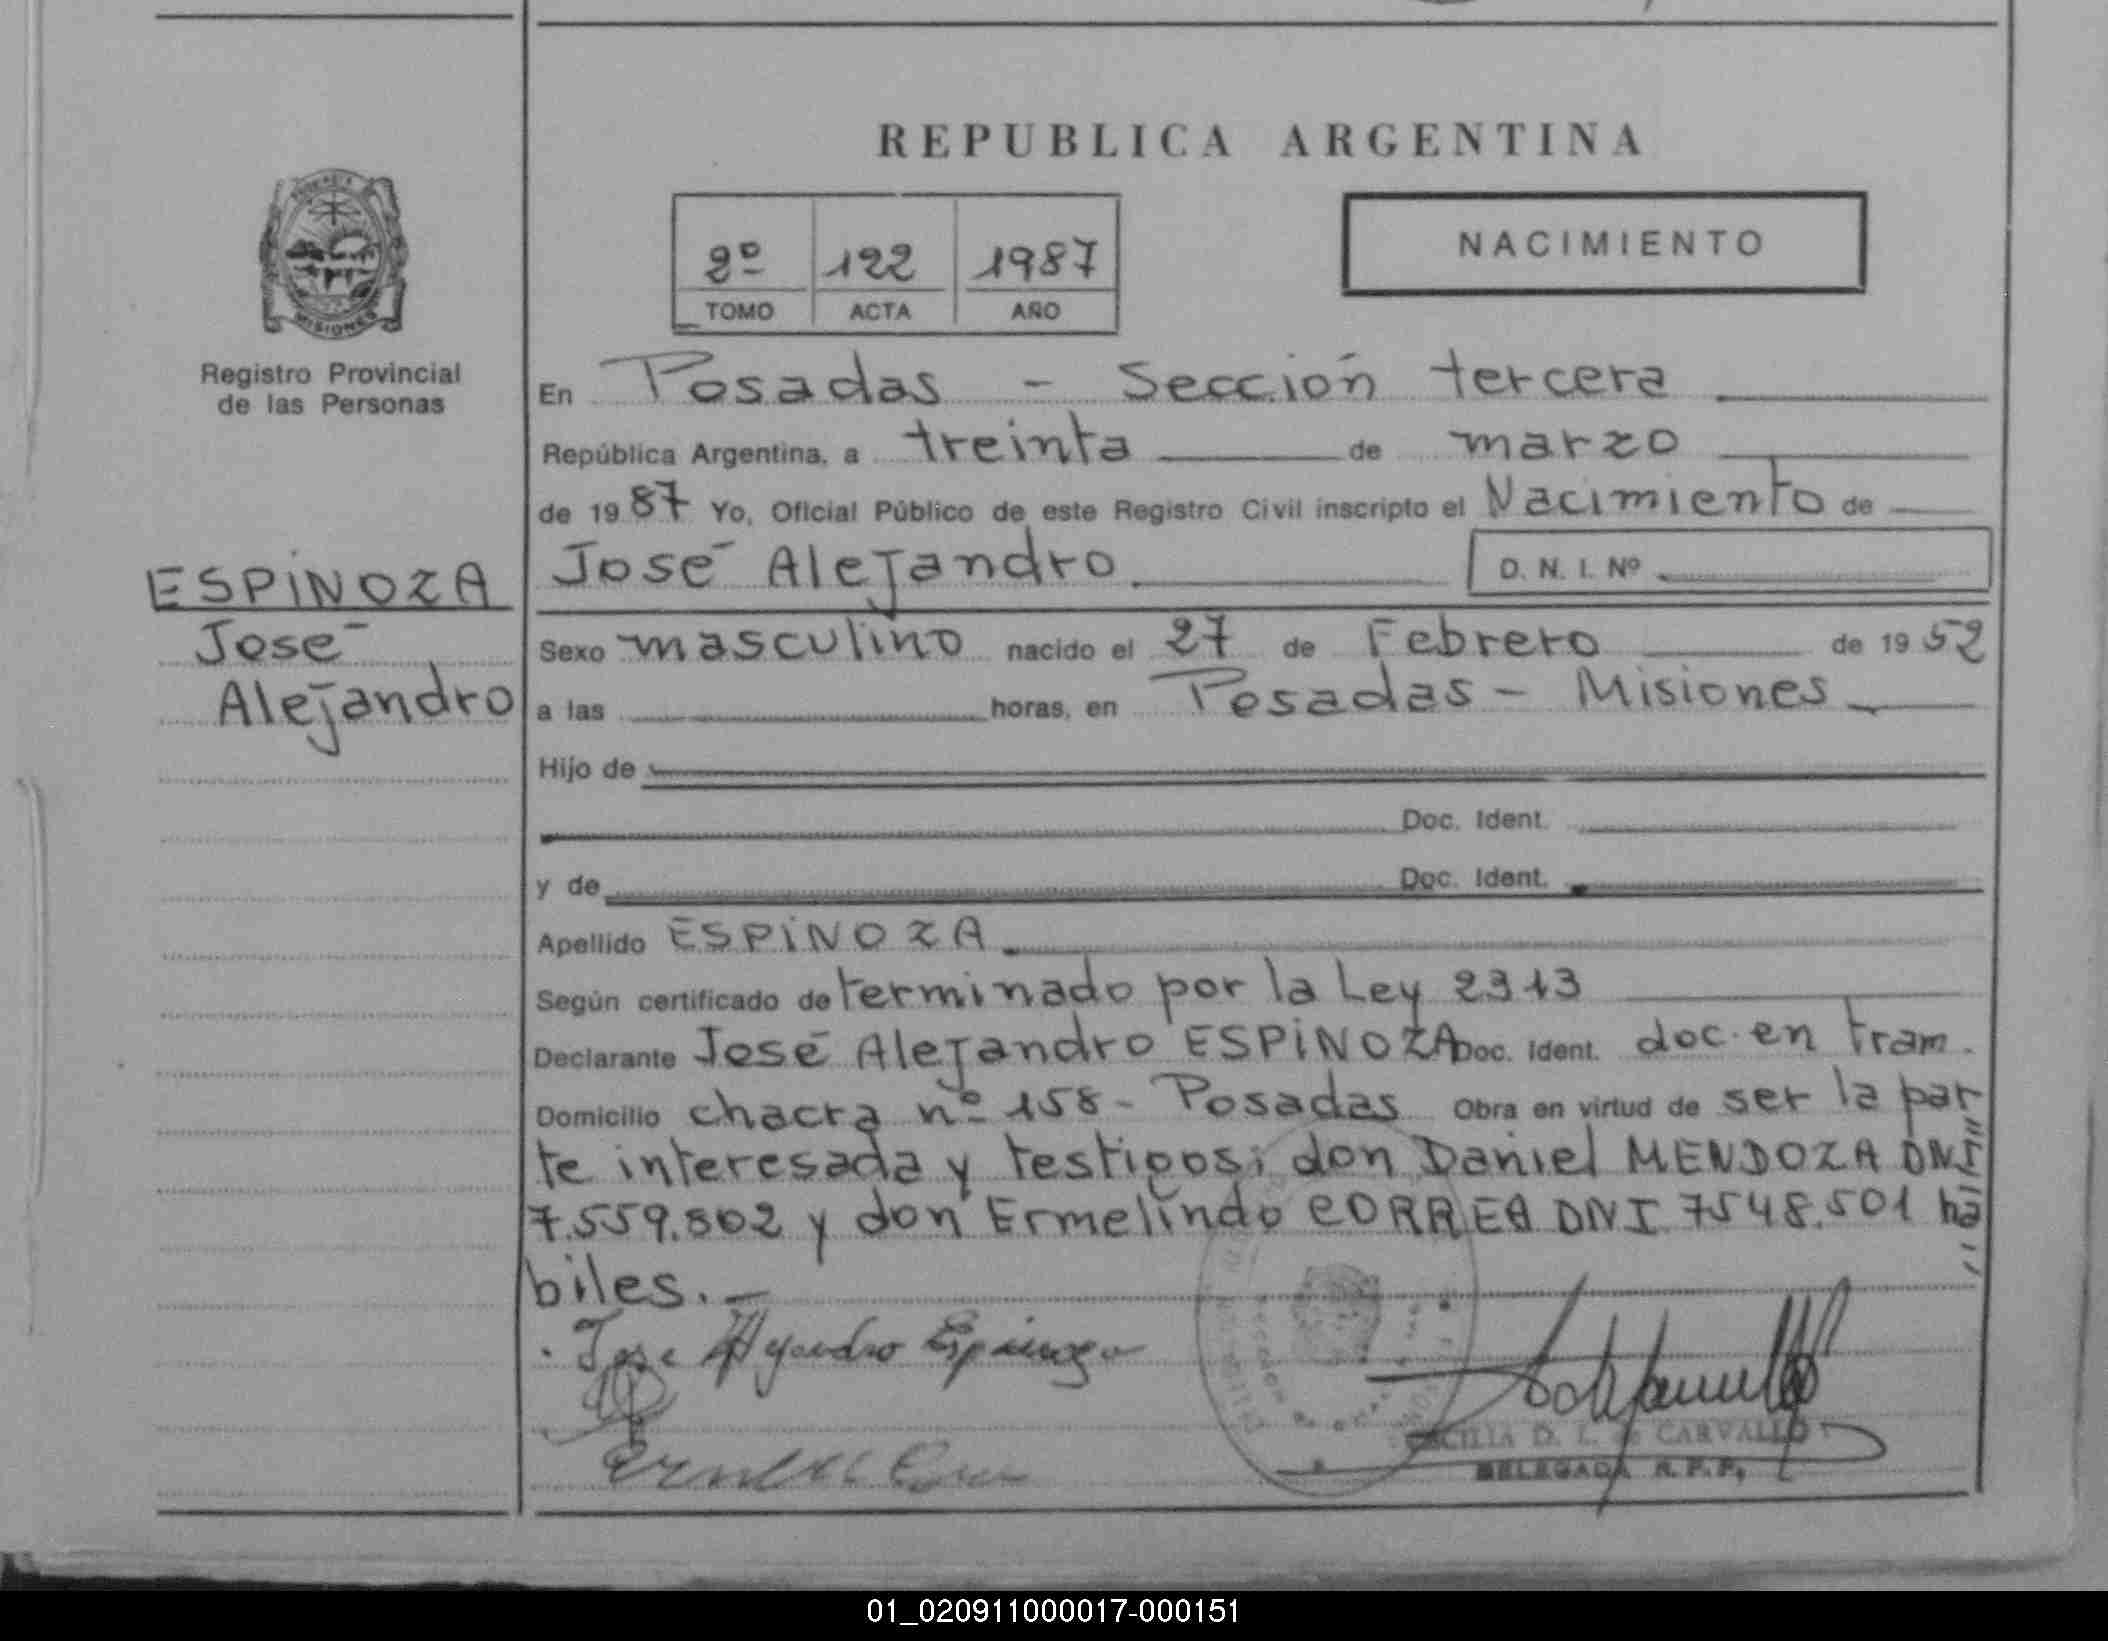 REPUBLICA ARGENTINA
2º 122 1987
TOMO ACTA AÑO
NACIMIENTO
MISIONES
Registro Provincial
de las Personas
ESPINOZA
José
Alejandro
En Posadas - Sección tercera
República Argentina, a treinta de marzo
de 1987 Yo, Oficial Público de este Registro Civil inscripto el Nacimiento de
José Alejandro D. N. I. Nº
Sexo masculino nacido el 27 de Febrero de 1952
a las horas, en Posadas - Misiones
Hijo de
Doc. Ident.
y de Doc. Ident.
Apellido ESPINOZA
Según certificado determinado por la Ley 2313
Declarante José Alejandro ESPINOZA Doc. Ident. doc. en tram.
Domicilio chacra nº 158 - Posadas Obra en virtud de ser la par
te interesada y testigos; don Daniel MENDOZA DNI
7.559.502 y don Ermelindo CORREA DNI 7548.501 há
biles.-
Jose Alejandro Espinoza
D. L. de CARVALLO
DELEGADA R.P.P.
01_020911000017-000151